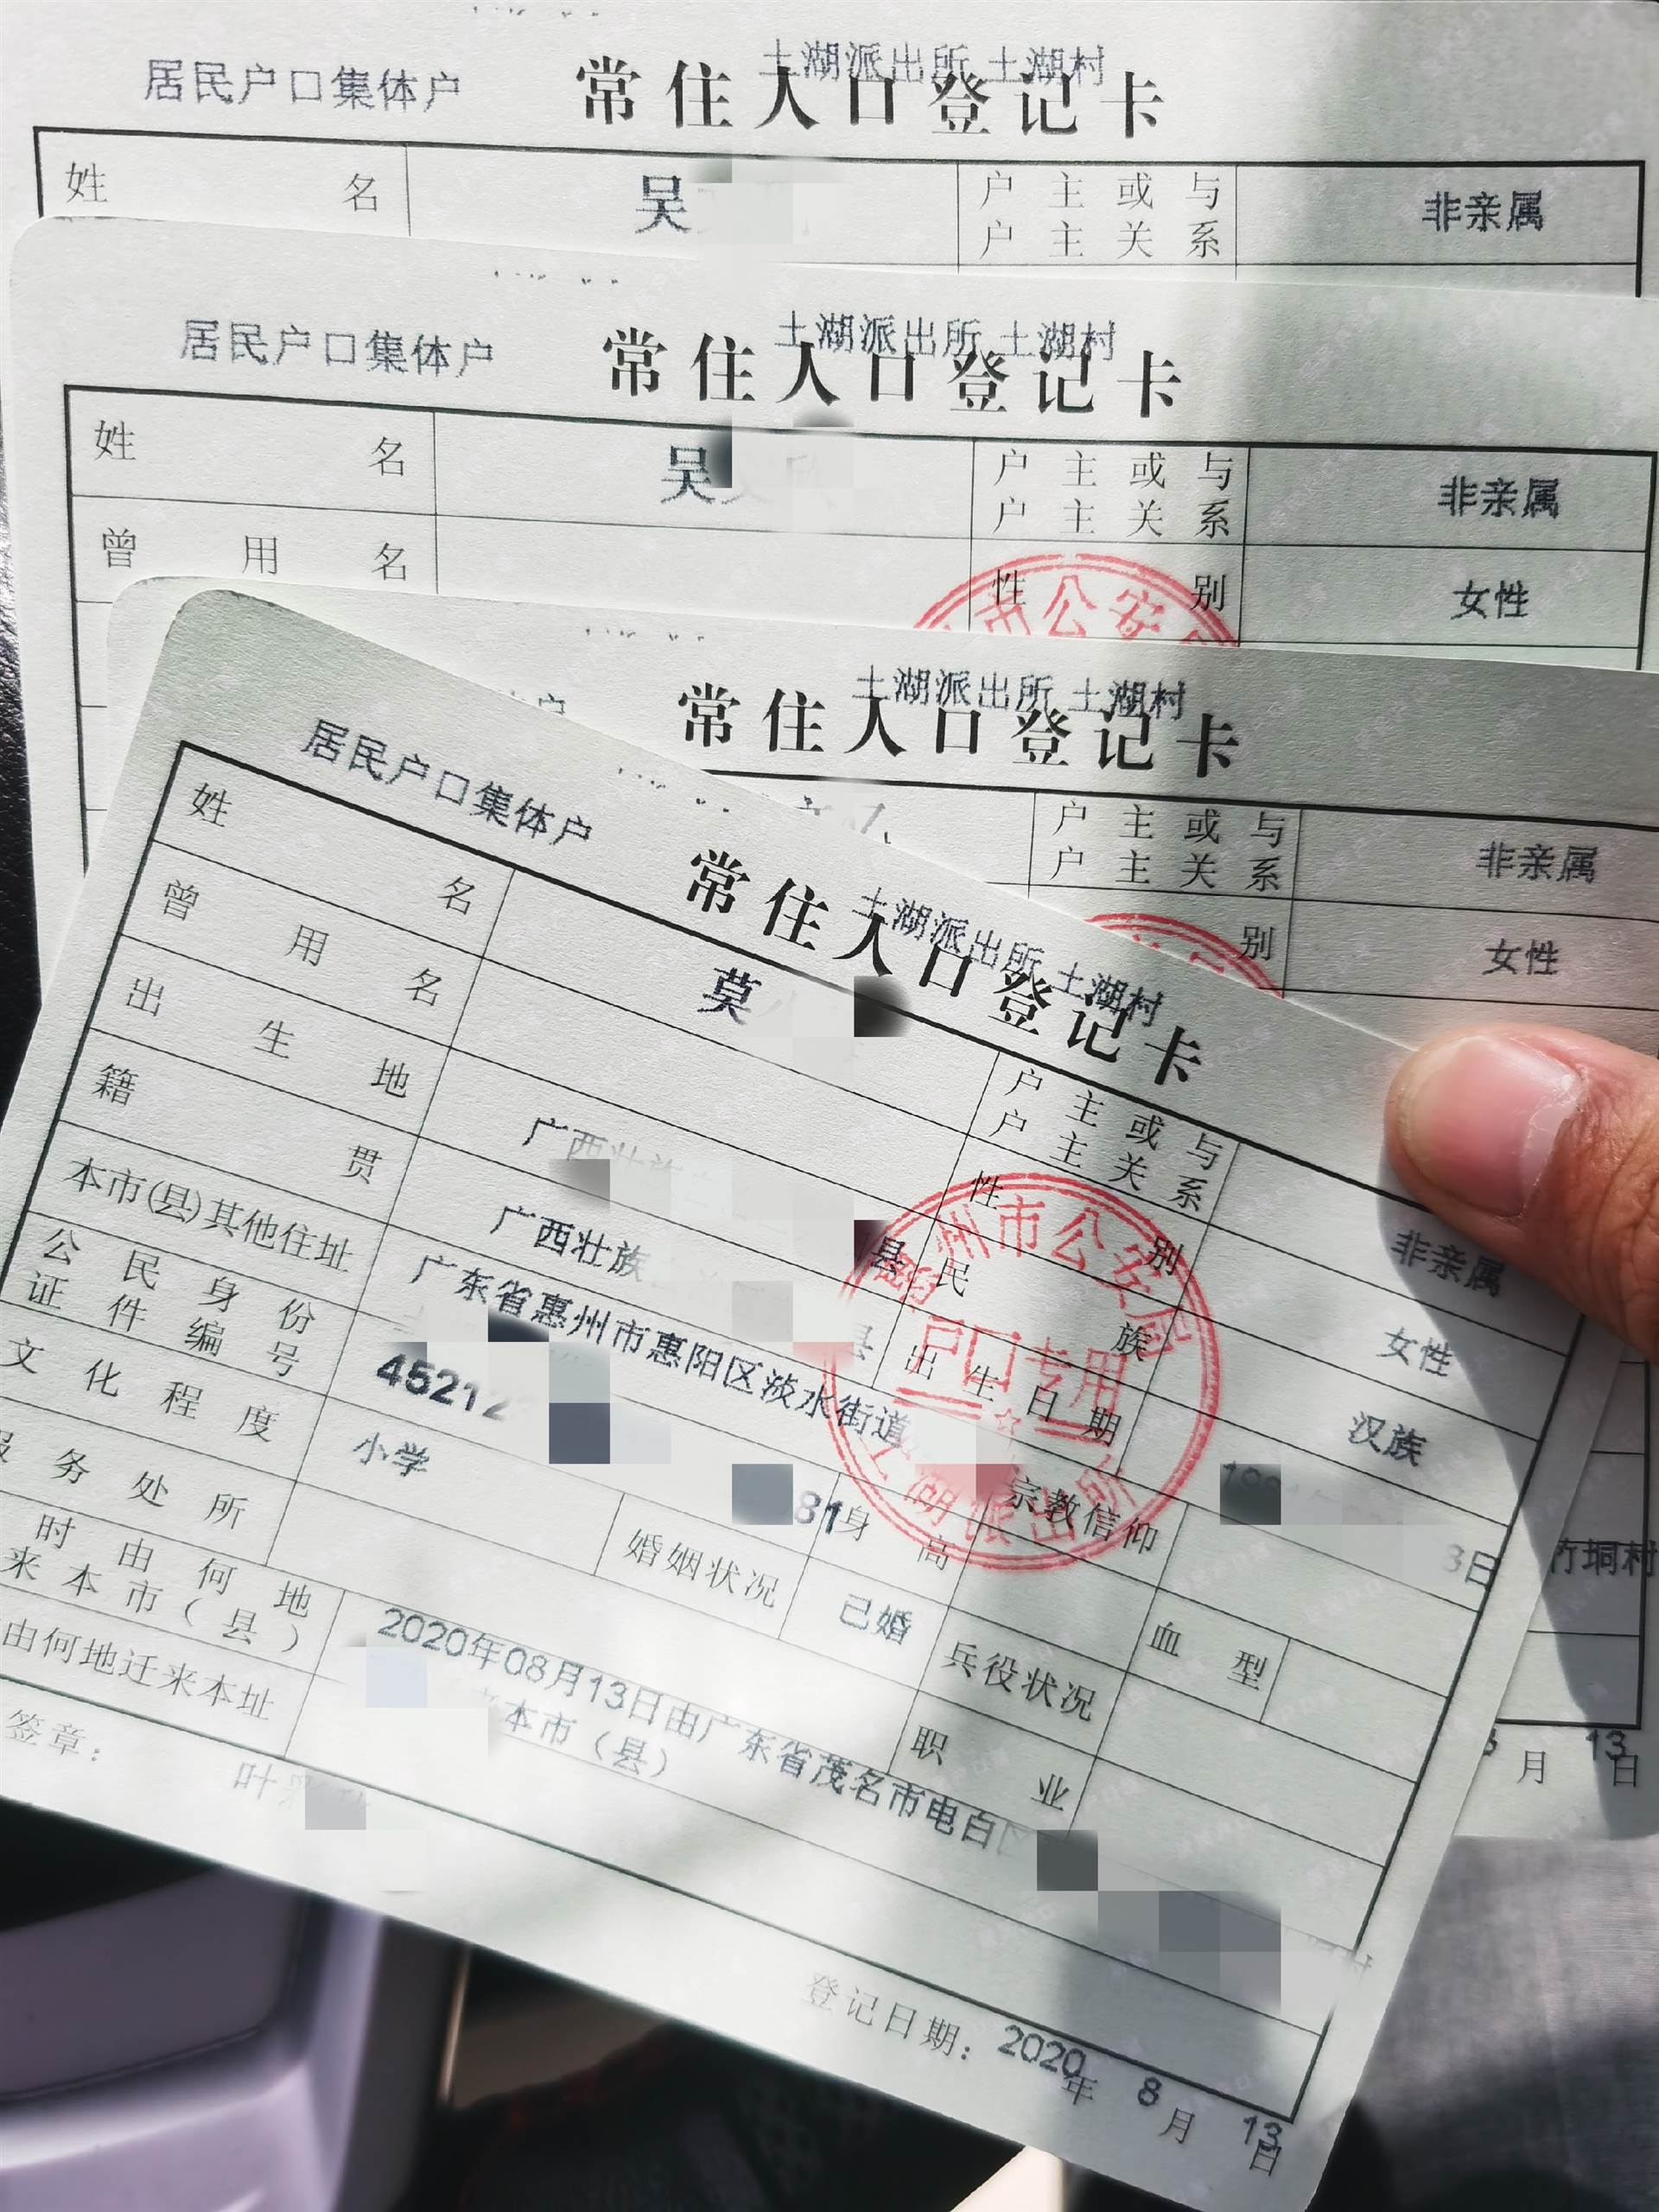 居民户口集体户
土湖派出所 土湖村
常住人口登记卡
姓名 吴 户主或与户主关系 非亲属
居民户口集体户
土湖派出所 土湖村
常住人口登记卡
姓名 吴 户主或与户主关系 非亲属
曾用名 性别 女性
市公安
户
土湖派出所 土湖村
常住人口登记卡
户主或与户主关系 非亲属
别 女性
居民户口集体户
土湖派出所 土湖村
常住人口登记卡
姓名 莫 户主或与户主关系 非亲属
曾用名 性别 女性
出生地 广西壮族 县 民族 汉族
籍贯 广西壮族 县 出生日期 3日
本市(县)其他住址 广东省惠州市惠阳区淡水街道 宗教信仰
公民身份证件编号 45212 81 身高 血型
文化程度 小学 婚姻状况 已婚 兵役状况
服务处所 职业
时由何地来本市(县) 2020年08月13日由广东省茂名市电白
本市(县)
由何地迁来本址
签章: 叶
登记日期: 2020年 8月 13日
州市公安局
户口专用
土湖派出所
竹垌村
月 13日